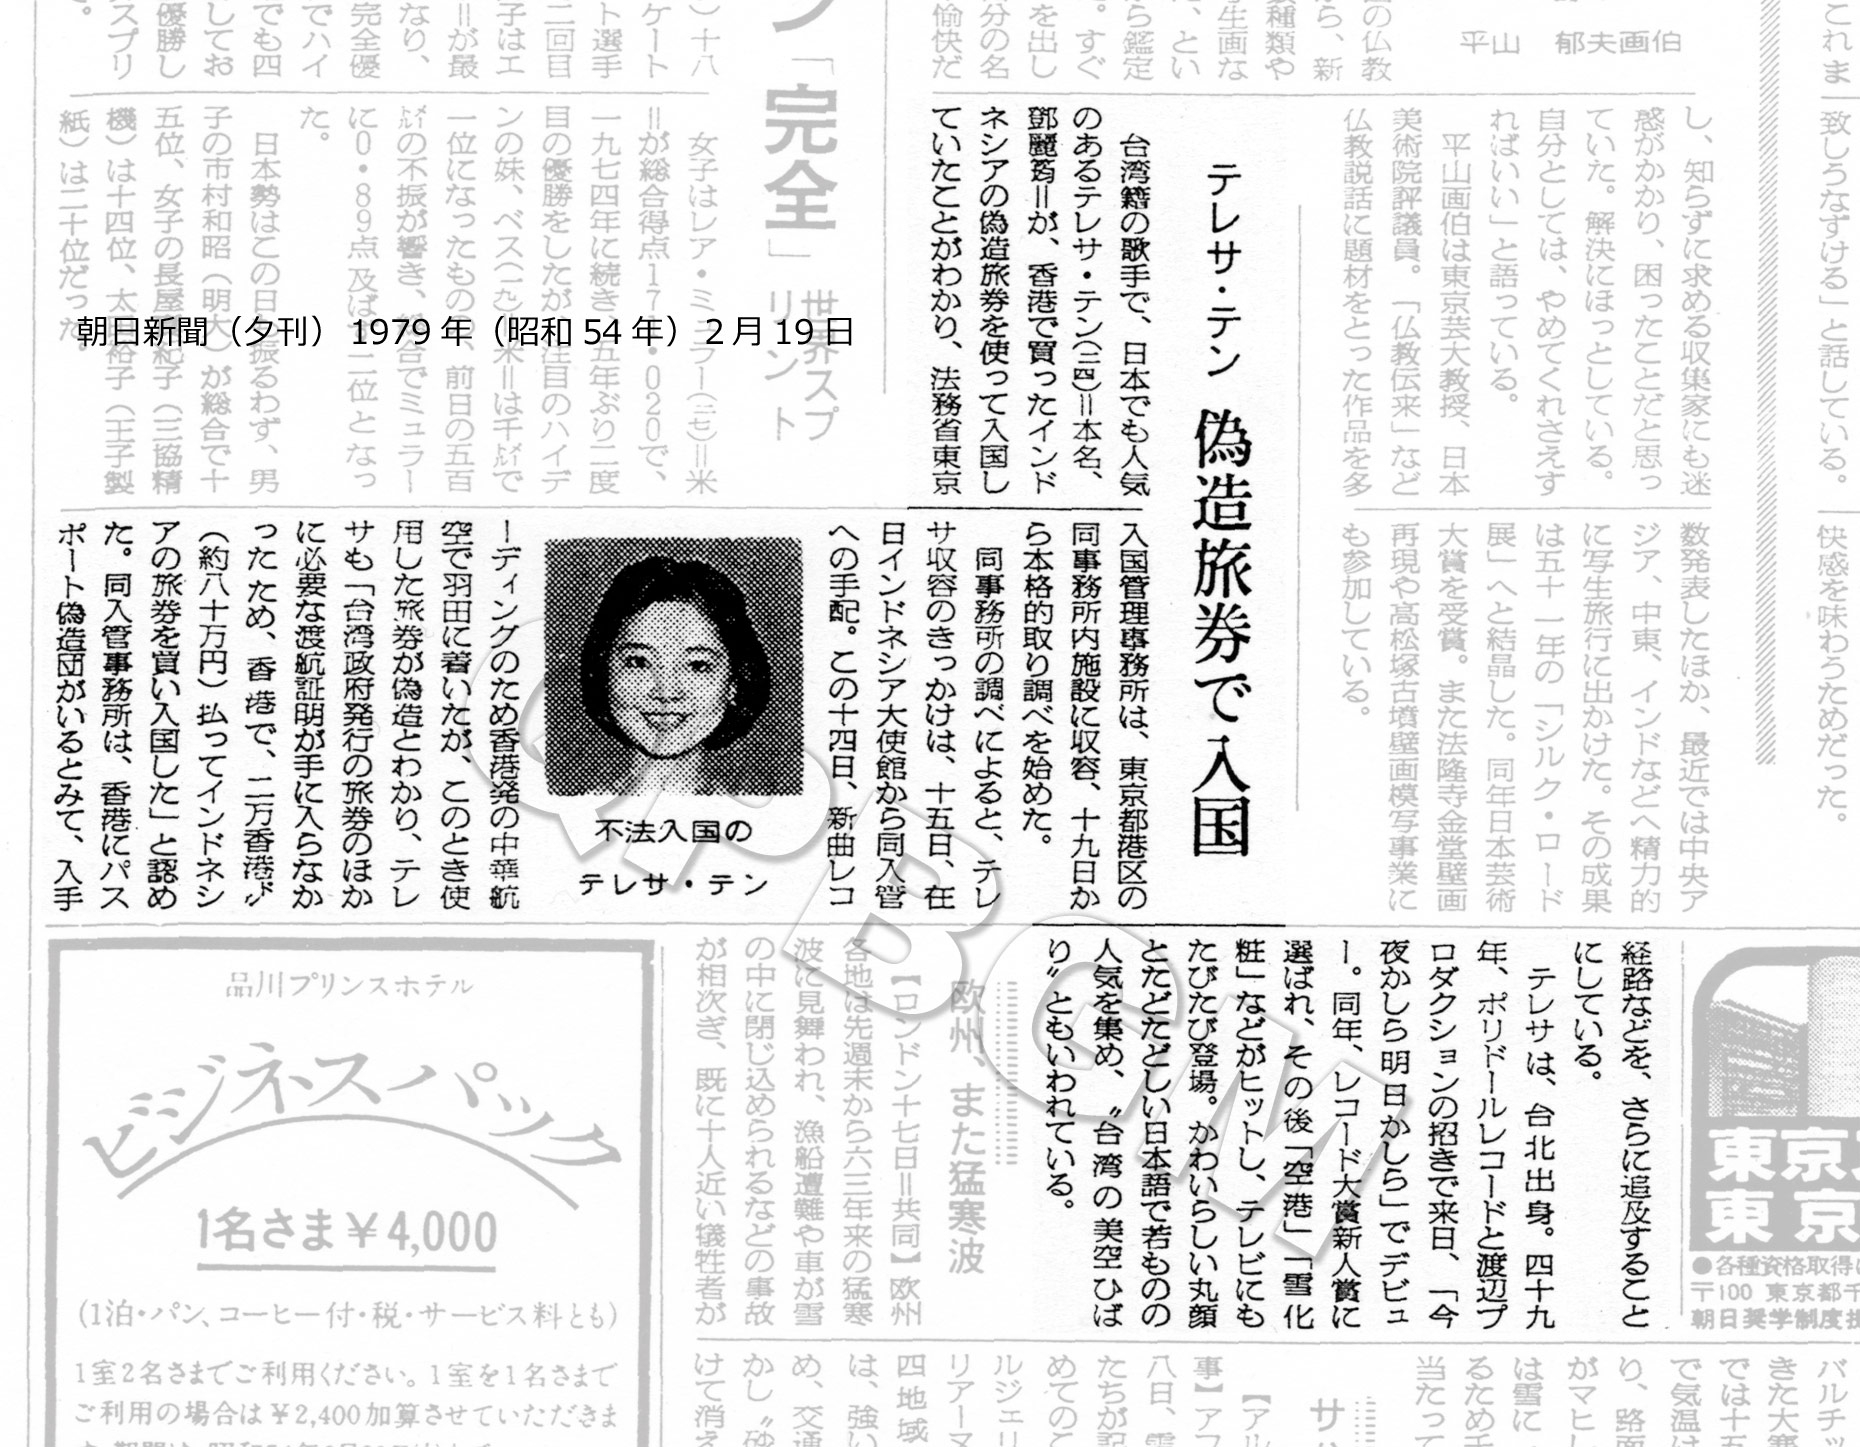 朝日新聞（夕刊）1979年（昭和54年）2月19日
テレサ・テン 偽造旅券で入国
台湾籍の歌手で、日本でも人気
のあるテレサ・テン(二四)＝本名、
鄧麗筠＝が、香港で買ったインド
ネシアの偽造旅券を使って入国し
ていたことがわかり、法務省東京
入国管理事務所は、東京都港区の
同事務所内施設に収容、十九日か
ら本格的取り調べを始めた。
同事務所の調べによると、テレ
サ収容のきっかけは、十五日、在
日インドネシア大使館から同入管
への手配。この十四日、新曲レコ
ーディングのため香港発の中華航
空で羽田に着いたが、このとき使
用した旅券が偽造とわかり、テレ
サも「台湾政府発行の旅券のほか
に必要な渡航証明が手に入らなか
ったため、香港で、二万香港㌦
（約八十万円）払ってインドネシ
アの旅券を買い入国した」と認め
た。同入管事務所は、香港にパス
ポート偽造団がいるとみて、入手
経路などを、さらに追及すること
にしている。
テレサは、台北出身。四十九
年、ポリドールレコードと渡辺プ
ロダクションの招きで来日、「今
夜かしら明日かしら」でデビュ
ー。同年、レコード大賞新人賞に
選ばれ、その後「空港」「雪化
粧」などがヒットし、テレビにも
たびたび登場。かわいらしい丸顔
とたどたどしい日本語で若ものの
人気を集め、〝台湾の美空ひば
り〟ともいわれている。
不法入国の
テレサ・テン
QPBGM
平山 郁夫画伯
し、知らずに求める収集家にも迷
感がかかり、困ったことだと思っ
ていた。解決にほっとしている。
自分としては、やめてくれさえす
ればいい」と語っている。
平山画伯は東京芸大教授、日本
美術院評議員。「仏教伝来」など
仏教説話に題材をとった作品を多
数発表したほか、最近では中央ア
ジア、中東、インドなどへ精力的
に写生旅行に出かけた。その成果
は五十一年の「シルク・ロード
展」へと結晶した。同年日本芸術
大賞を受賞。また法隆寺金堂壁画
再現や高松塚古墳壁画模写事業に
も参加している。
致しうなずける」と話している。
快感を味わうためだった。
「完全」
世界スプ
リント
女子はレア・ミュラー(二七)＝米
＝が総合得点171・020で、
一九七四年に続き、五年ぶり二度
目の優勝をしたが、注目のハイデ
に0・89点及ばず二位となっ
た。
日本勢はこの日も振るわず、男
子の市村和昭（明大）が総合で十
紙）は二十位だった。
欧州、また猛寒波
【ロンドン十七日＝共同】欧州
各地は先週末から六三年来の猛寒
波に見舞われ、漁船遭難や車が雪
の中に閉じ込められるなどの事故
が相次ぎ、既に十人近い犠牲者が
品川プリンスホテル
ビジネスパック
1名さま￥4,000
（1泊・パン、コーヒー付・税・サービス料とも）
1室2名さまでご利用ください。1室を1名さまで
ご利用の場合は￥2,400加算させていただきま
●各種資格取得
〒100 東京都千
朝日奨学制度